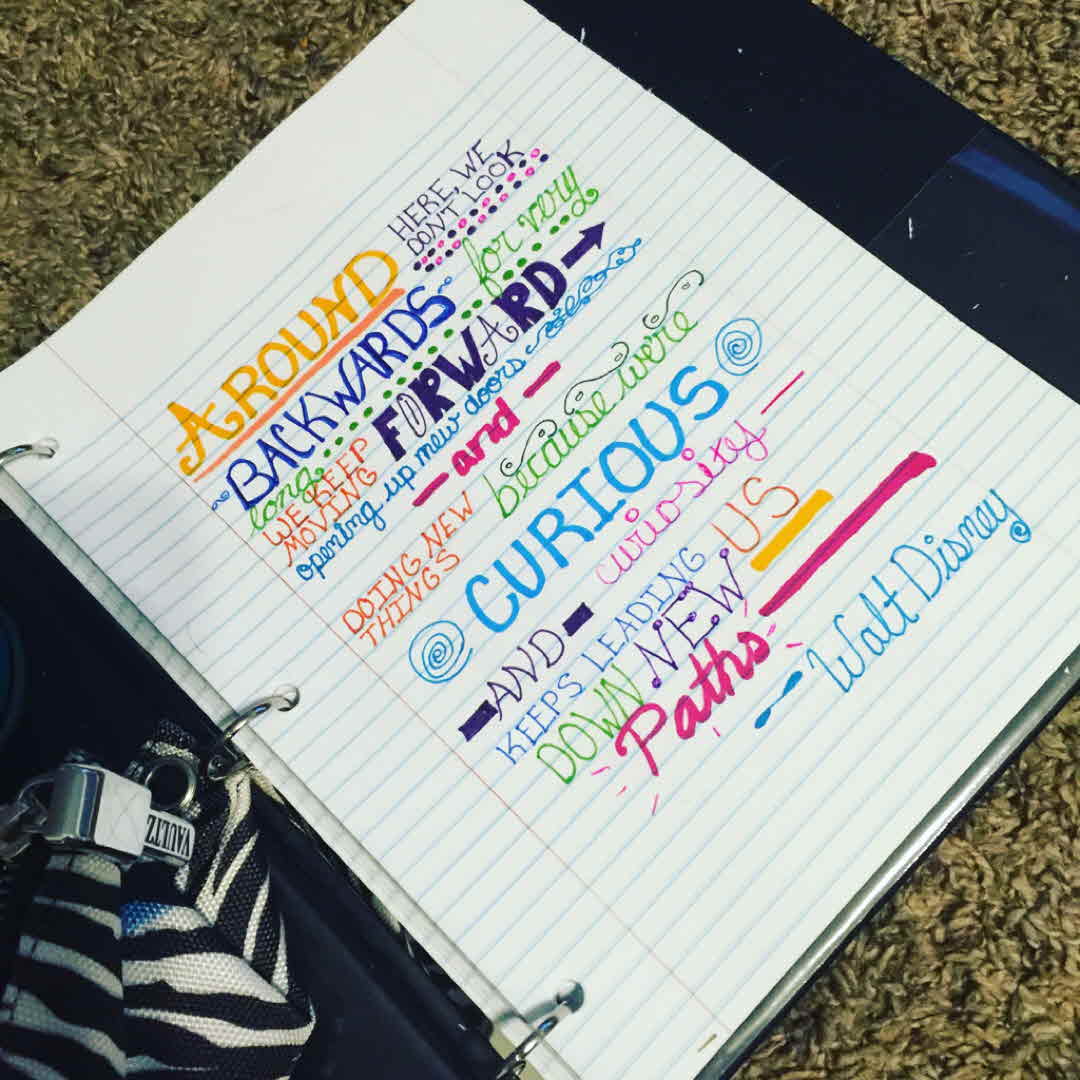 AROUND HERE, WE DON'T LOOK
BACKWARDS for very
long
WE KEEP MOVING FORWARD
opening up new doors
and
DOING NEW THINGS because we're
CURIOUS
AND curiosity
KEEPS LEADING US
DOWN NEW
Paths
Walt Disney
VAULTZ